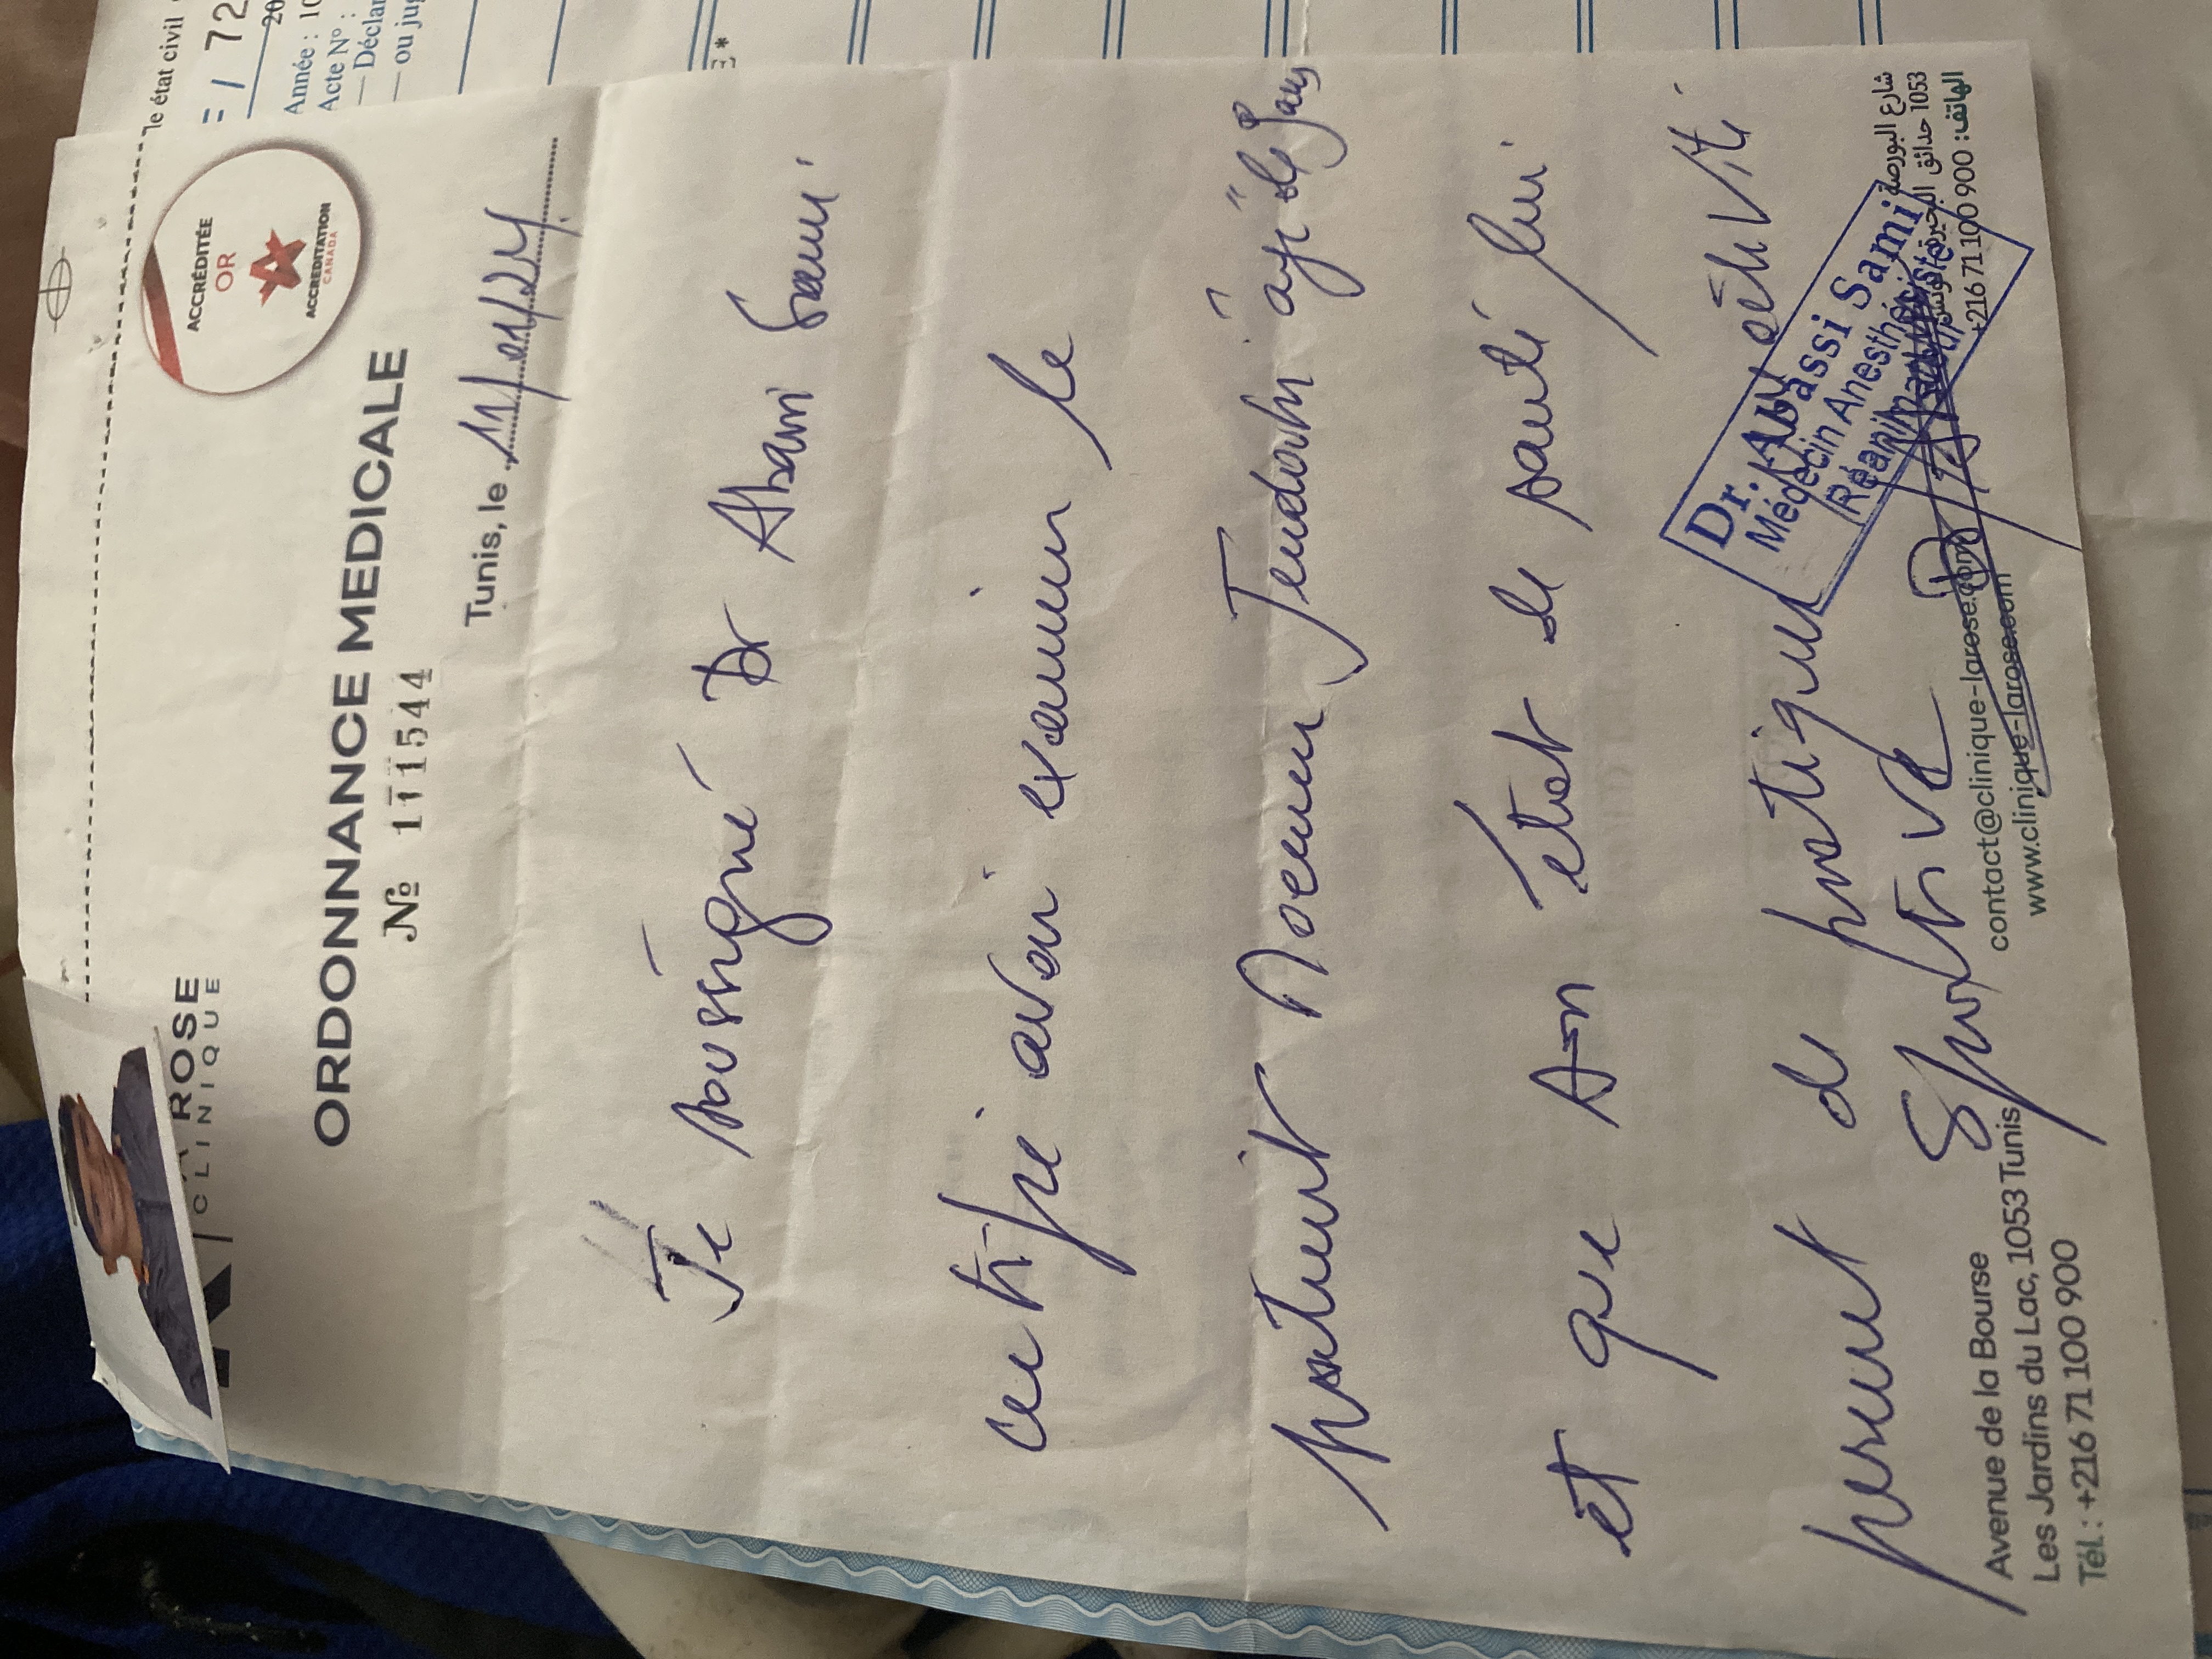 le état civil
= / 72
20
Année : 10
Acte N° :
— Déclar
— ou jug
ROSE
CLINIQUE
ACCRÉDITÉE
OR
ACCREDITATION
CANADA
ORDONNANCE MEDICALE
№ 111544
Tunis, le 11/01/24
Je soussigné Dr Abassi Sami
certifie avoir examiner le
patient Jendoubi âgé de
et que son état de santé lui
permet de pratiquer activité
Sportive
Dr. Abassi Sami
Médecin Anesthésiste
Réanimateur
Avenue de la Bourse
Les Jardins du Lac, 1053 Tunis
Tél. : +216 71 100 900
contact@clinique-larose.com
www.clinique-larose.com
شارع البورصة
حدائق البحيرة 1053 تونس
الهاتف: 900 100 71 216+